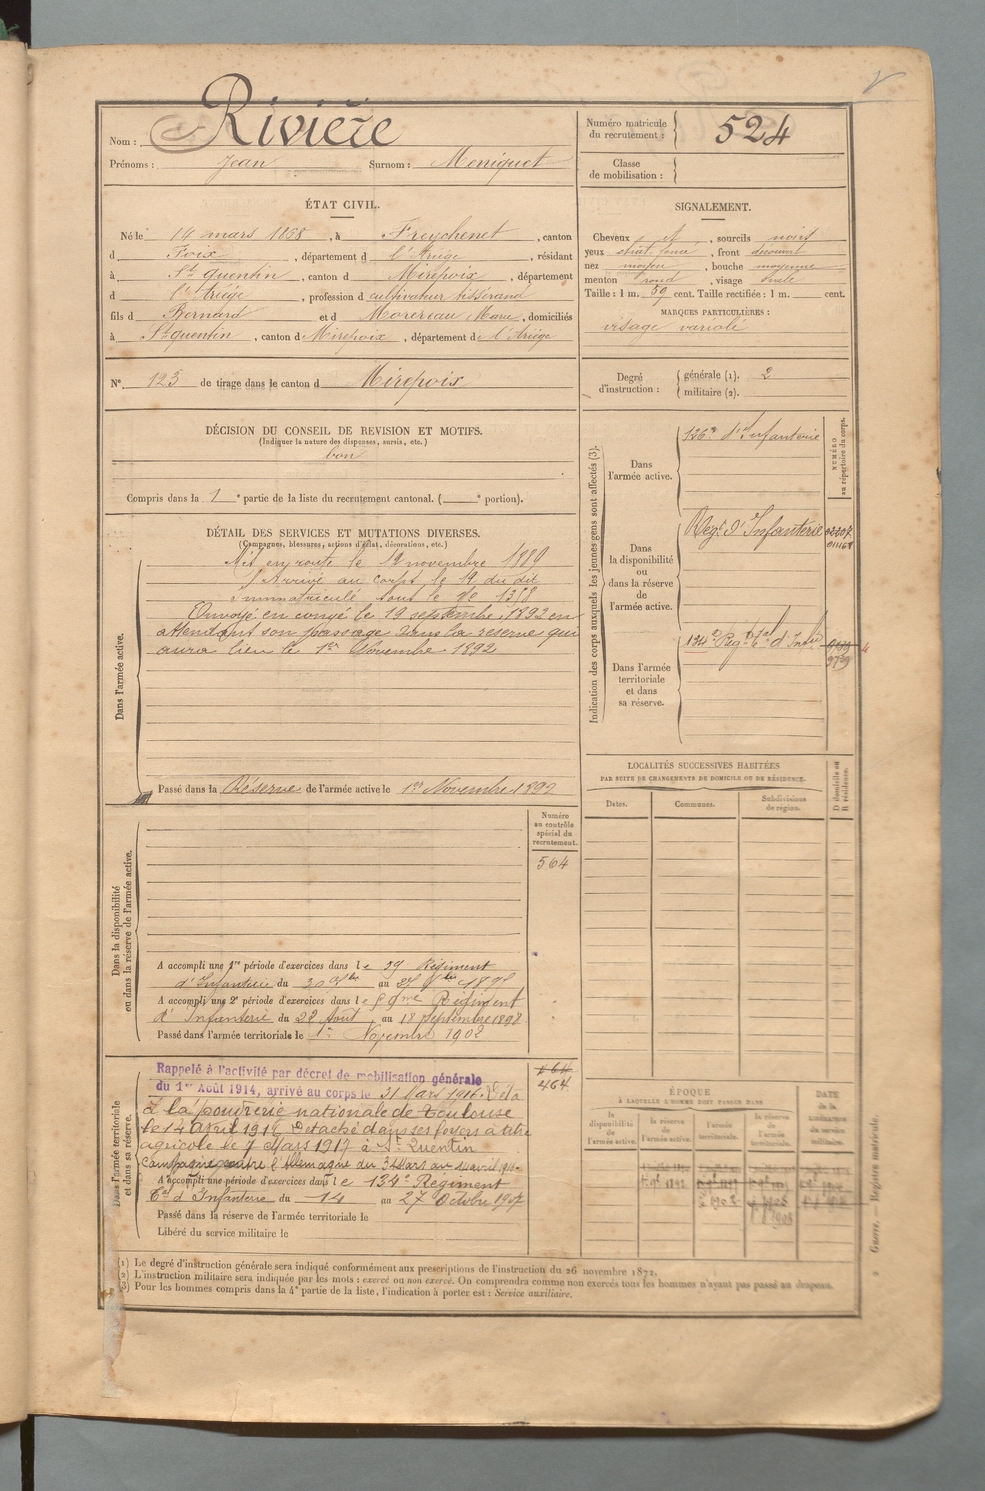 Nom : Rivière
Prénoms : Jean Surnom : Meniquet
Numéro matricule
du recrutement : 524
Classe
de mobilisation :
ÉTAT CIVIL.
Né le 14 mars 1868, à Freychenet, canton
d Foix, département d l'Ariège, résidant
à St quentin, canton d Mirepoix, département
d l'Ariège, profession d cultivateur tisserand
fils d Bernard et d Marie, domiciliés
à St quentin, canton d Mirepoix, département de l'Ariège
N° 123 de tirage dans le canton d Mirepoix
SIGNALEMENT.
Cheveux et, sourcils noirs
yeux foncé, front découvert
nez moyen, bouche moyenne
menton rond, visage ovale
Taille : 1 m. 59 cent. Taille rectifiée : 1 m. cent.
MARQUES PARTICULIÈRES :
visage variolé
Degré
d'instruction :
générale (1). 2
militaire (2).
DÉCISION DU CONSEIL DE REVISION ET MOTIFS.
(Indiquer la nature des dispenses, sursis, etc.)
bon
Compris dans la 1e partie de la liste du recrutement cantonal. ( e portion).
DÉTAIL DES SERVICES ET MUTATIONS DIVERSES.
(Campagnes, blessures, actions d'éclat, décorations, etc.)
Dans l'armée active.
Mis en route le novembre 1889
Arrivé au corps le 19 du dit
Immatriculé sous le N° 1318
Envoyé en congé le 19 septembre 1892 en
attendant son passage dans la réserve qui
aura lieu le 1er Novembre 1892
Passé dans la Réserve de l'armée active le 1er Novembre 1892
Indication des corps auxquels les jeunes gens sont affectés (3).
NUMÉRO
au répertoire du corps.
Dans
l'armée active.
126e d'Infanterie
Dans
la disponibilité
ou
dans la réserve
de
l'armée active.
Regt d'Infanterie
Dans l'armée
territoriale
et dans
sa réserve.
134e Regt tal d'Infie
LOCALITÉS SUCCESSIVES HABITÉES
PAR SUITE DE CHANGEMENTS DE DOMICILE OU DE RÉSIDENCE.
Dates.
Communes.
Subdivisions
de région.
D domicile ou
R résidence.
Dans la disponibilité
ou dans la réserve de l'armée active.
Numéro
au contrôle
spécial du
recrutement.
564
A accompli une 1re période d'exercices dans le Régiment
d'Infanterie du au
A accompli une 2e période d'exercices dans le Régiment
d'Infanterie du 22 Aout au 18 Septembre 1898
Passé dans l'armée territoriale le 1er Novembre 1902
Dans l'armée territoriale
et dans sa réserve.
464
Rappelé à l'activité par décret de mobilisation générale
du 1er Août 1914, arrivé au corps le 31 Mars 1916. Détá
à la poudrerie nationale de Toulouse
le 14 avril 1916 Détaché dans ses foyers à titre
agricole le 7 Mars 1917 à St Quentin
Campagne contre l'Allemagne du 31 Mars au 14 avril 1916.
A accompli une période d'exercices dans le 134e Régiment
tal d'Infanterie du 14 au 27 Octobre 1907
Passé dans la réserve de l'armée territoriale le
Libéré du service militaire le
ÉPOQUE
À LAQUELLE L'HOMME DOIT PASSER DANS
la
disponibilité
de
l'armée active.
la réserve
de
l'armée active.
l'armée
territoriale.
la réserve
de
l'armée
territoriale.
DATE
de la
LIBÉRATION
du
service
militaire.
(1) Le degré d'instruction générale sera indiqué conformément aux prescriptions de l'instruction du 26 novembre 1872.
(2) L'instruction militaire sera indiquée par les mots : exercé ou non exercé. On comprendra comme non exercés tous les hommes n'ayant pas passé au drapeau.
(3) Pour les hommes compris dans la 4e partie de la liste, l'indication à porter est : Service auxiliaire.